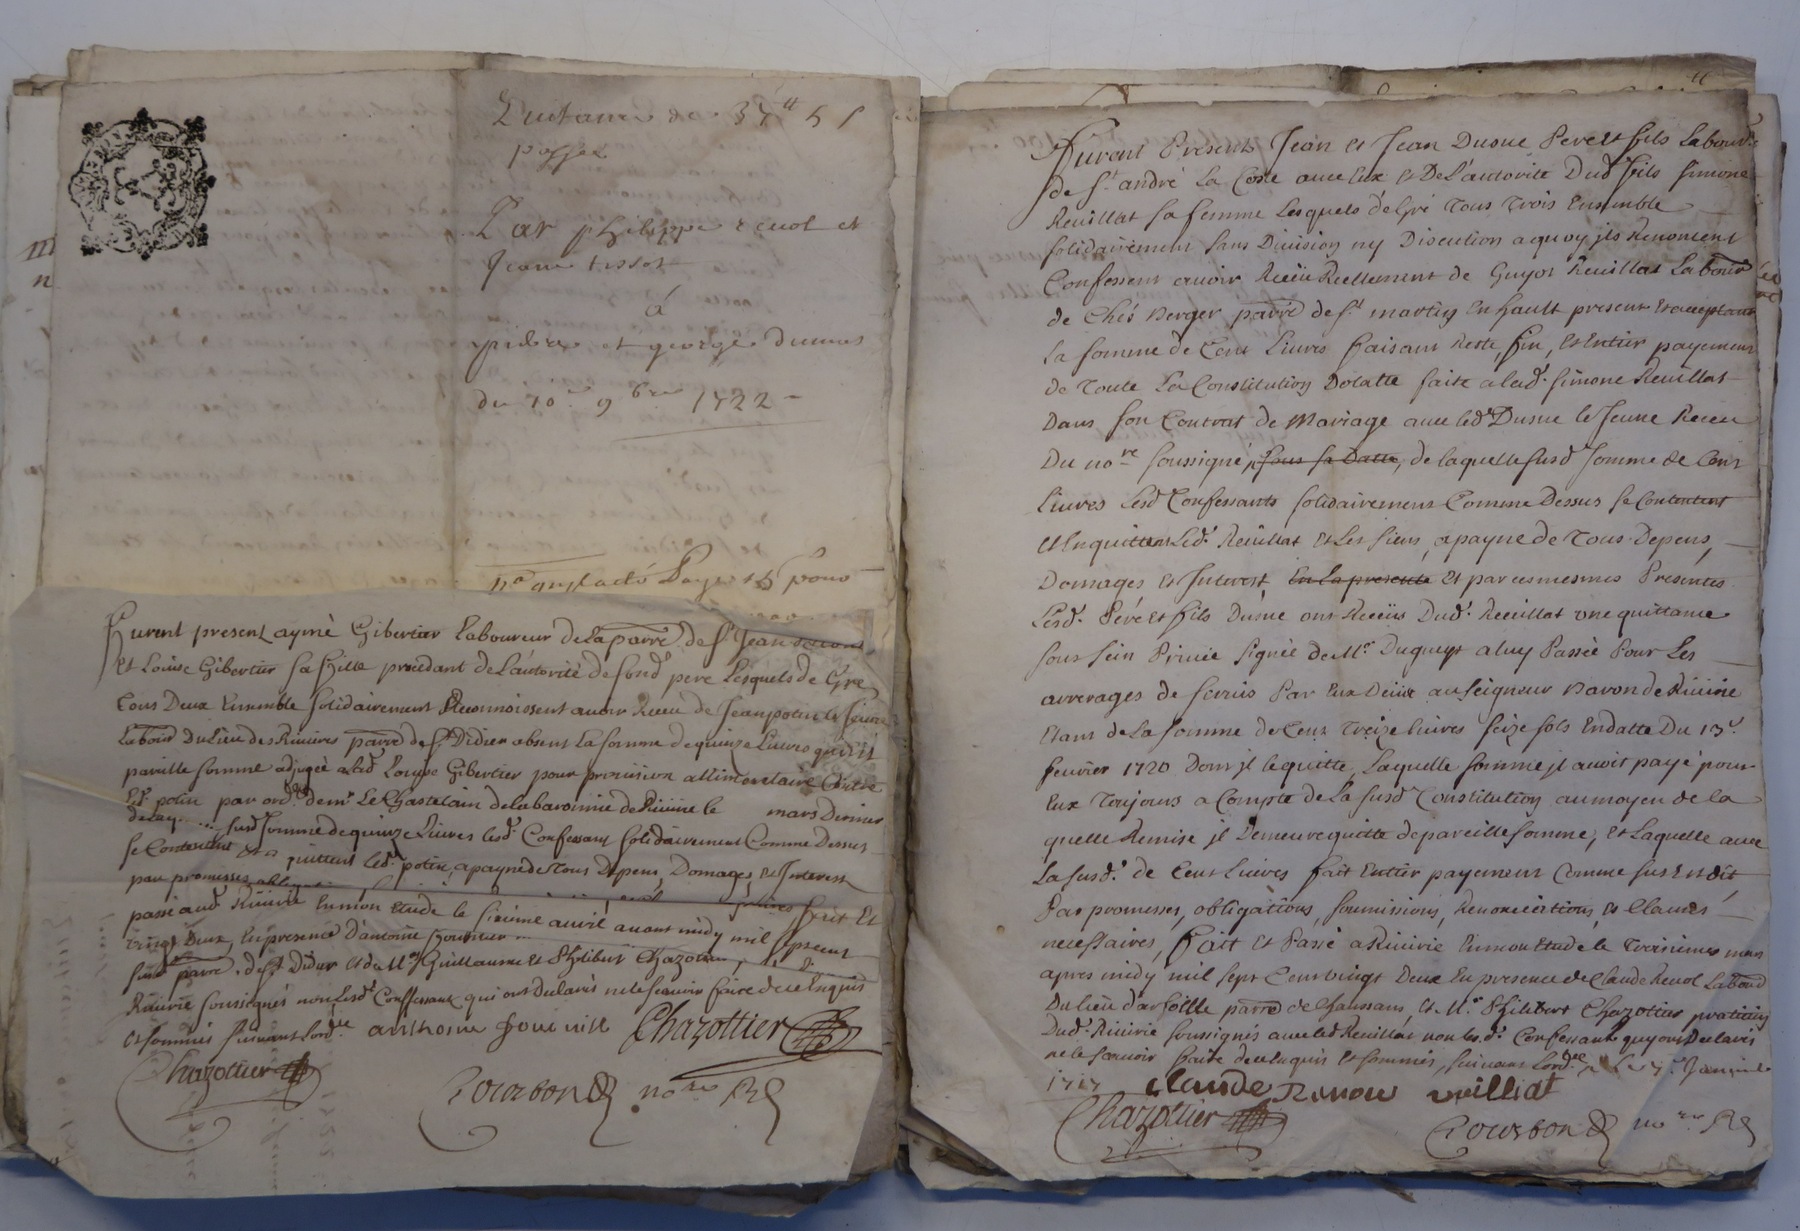 Quitance de 37 tt 5 s
passee
Par philippe revol et
Jeane tissot
á
pierre et george dumas
du 10e 9bre 1722
Furent present aymé Gibertier Laboureur de La parre. de St Jean
et Loüise Gibertier sa fille procedant de L'autorité de sond. pere Lesquels de Gre
tous Deux Ensemble solidairement Reconnoissent avoir Receu de Jean potin le Jeune
Labour. Du Lieu des Rivieres parre. de St Didier absent La somme de quinze Livres
pareille somme adjugée a lad. Louyse Gibertier pour provision allimentaire Contre
potin par ord. de mr. Le Chastelain de la baronnie de Riuirie le mars Dernier
susd. somme de quinze Livres lesd. Confessant solidairement Comme Dessus
se Contentent et quittent led. potin, a payne de tous Depens, Domages, et Interest
par promesses
passé aud. Riuirie En mon Etude le sixieme avril avant midy mil sept cent
vingt Deux, En presence D'antoine
parre. de St Didier et de Mes. Guillaume et Philibert Chazottier
Riuirie soussignés non Lesd. Confessant qui ont Declarés ne le scavoir faire de ce Enquis
et sommés suivant Lord.ce anthoine Chazottier
Chazottier
Bourbon nore. Rl
Furent Presents Jean et Jean Dusue Pere et fils Labourrs.
de St. andré La Coste avec Eux et De L'autorité Dud. fils Simone
Reuillat sa femme Lesquels de Gré Tous Trois Ensemble
solidairement sans Division ny Discution a quoy jls Renoncent
Confessent avoir Receu Reellement de Guyot Reuillat Labour.
de Chés Berger parre. de St. martin En hault present et acceptant
La somme de Cent Livres faisant Reste, fin, et Entier payement
de Toute La Constitution Dotalle faite a lad. Simone Reuillat
Dans son Contrat de Mariage avec led. Dusue le Jeune Receu
Du nore. soussigné, sous sa Datte, de laquelle susd. somme de Cent
Livres Lesd. Confessants solidairement Comme Dessus se Contentent
et Enquittent Led. Reuillat et Les siens, a payne de Tous Depens,
Domages et Interest, En La presente Et par ces mesmes Presentes
Lesd. Pere et fils Dusue ont Receüs Dud. Reuillat vne quittance
sous sein Privé signée de Mr. Dugueyt a luy Passée Pour Les
arrerages de servis Par Eux Deüs au seigneur Baron de Riuirie
Etant de La somme de Cent Treize Livres seize sols En datte Du 13e.
fevrier 1720 Dont jl le quitte, Laquelle somme jl avoit payé pour
Eux Toujours a Compte de La susd. Constitution au moyen de la
quelle Remise jl Demeure quitte de pareille somme, et Laquelle avec
La susd. de Cent Livres fait Entier payement Comme sus Est dit
Par promesses, obligations, soumissions, Renonciations, et Clauses
necessaires, fait et Passé a Riuirie En mon Etude le Troisieme mars
apres midy mil sept Cent vingt Deux En presence de Claude Revol Labour.
Du Lieu d'arfeille parre. de Chaussans, et Me. Philibert Chazottier praticien
Dud. Riuirie soussignés avec led. Reuillat non les d. Confessants quy ont Declarés
ne le scavoir faire de ce Enquis et sommés, suivant Lord.ce
claude Revou reuilliat
Chazottier
Bourbon nore. Rl